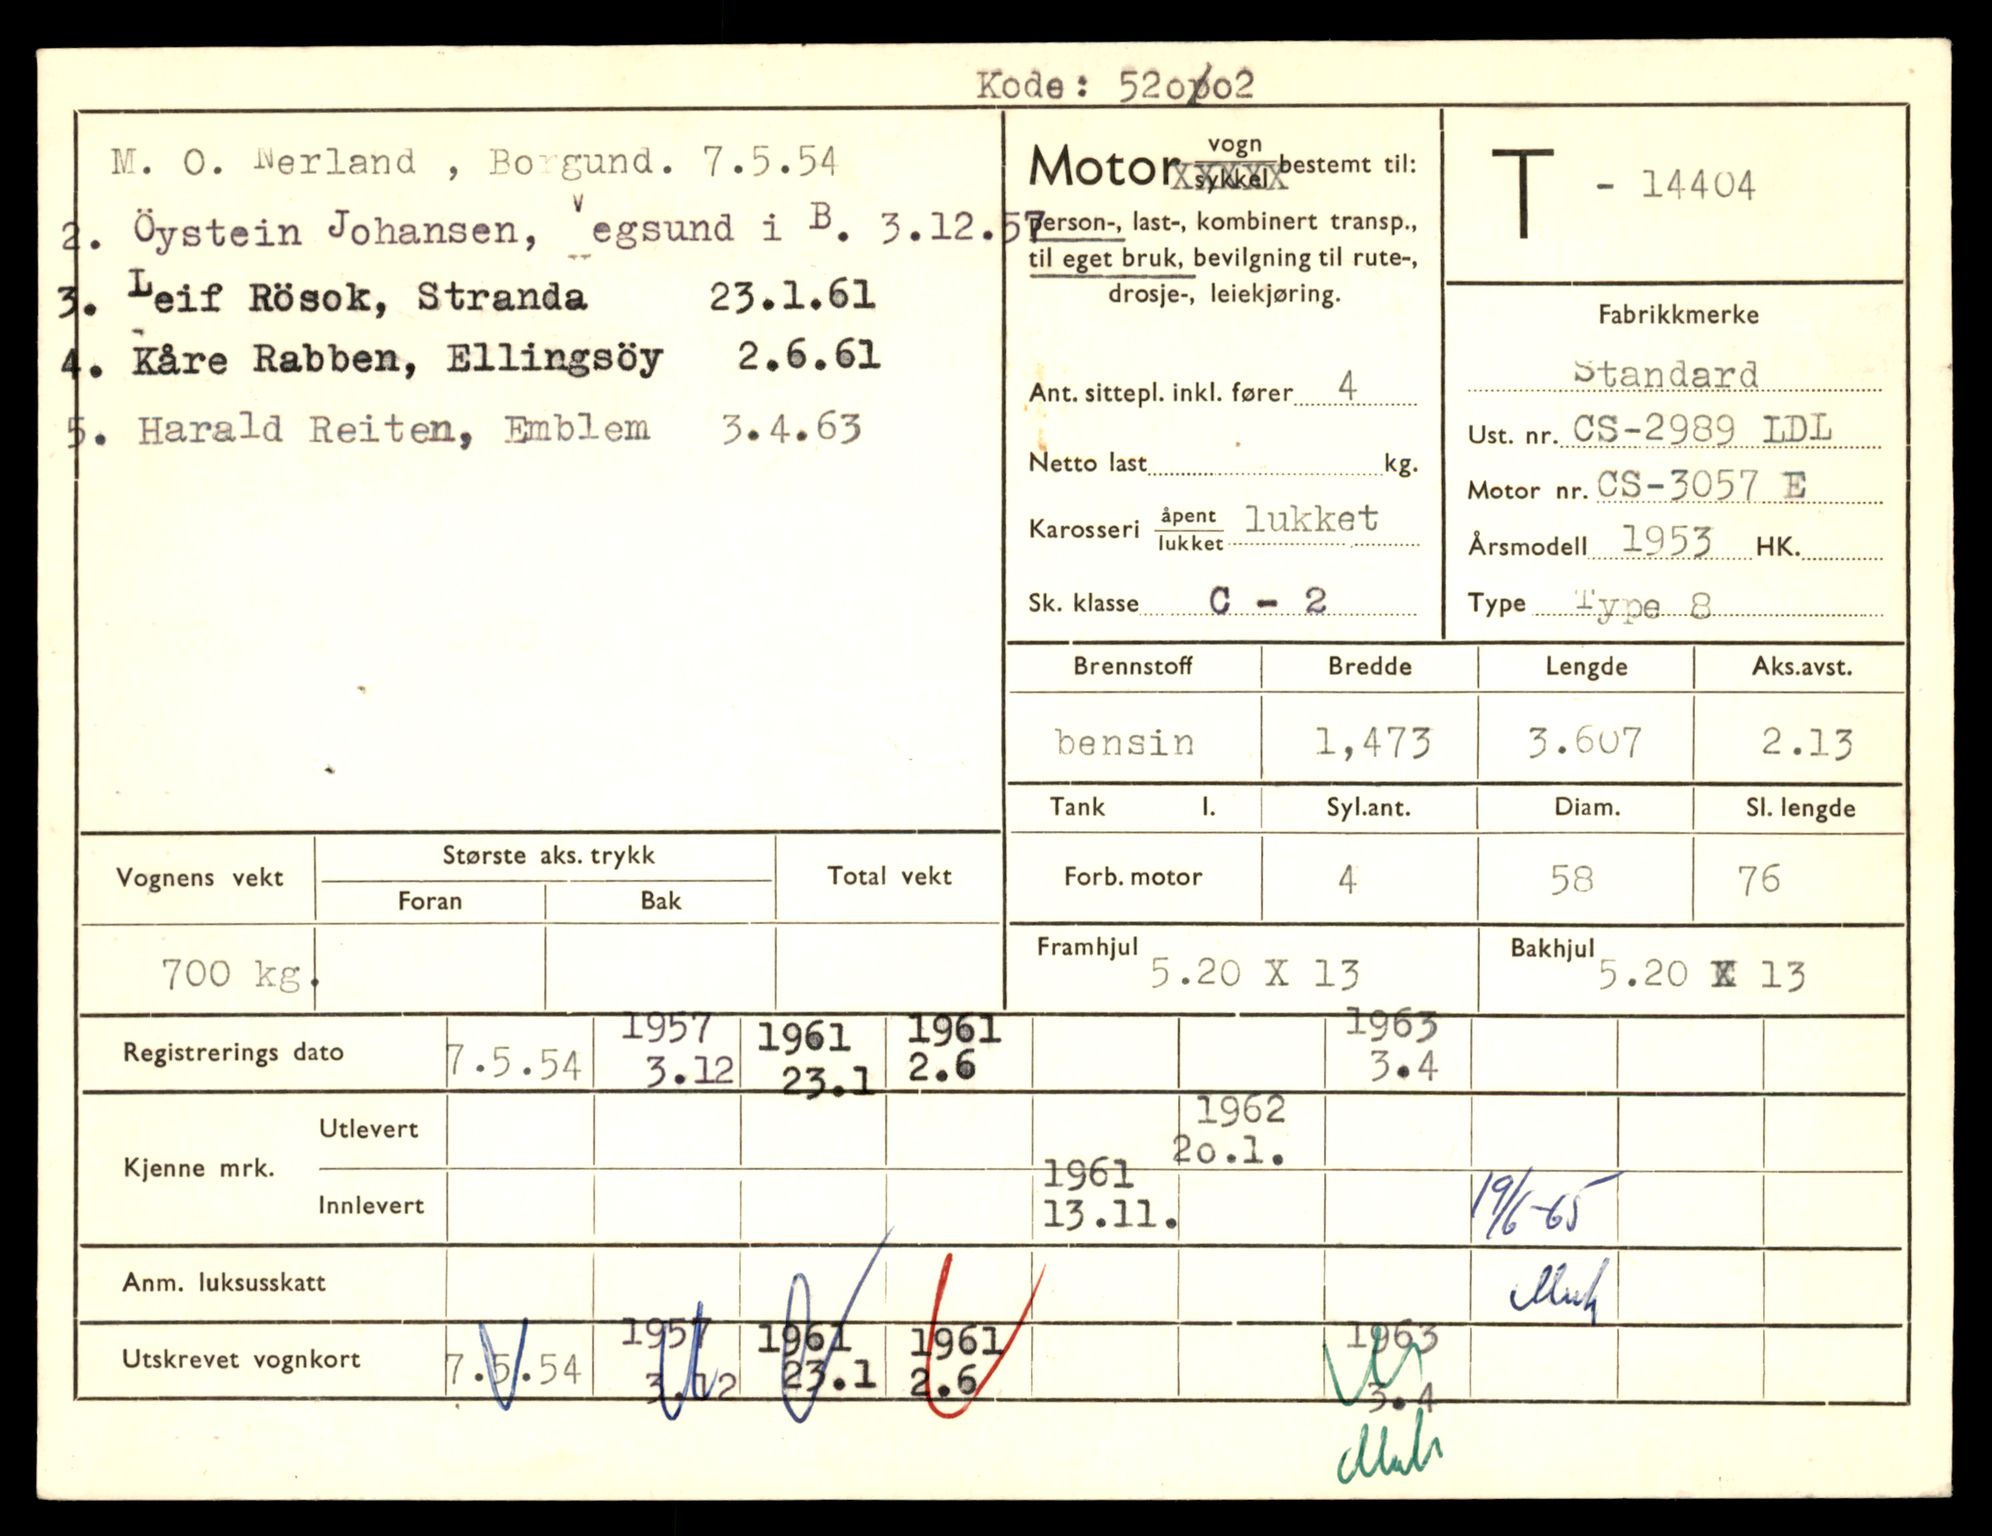 Kode: 520002
M. O. Nerland , Borgund. 7.5.54
2. Öystein Johansen, Vegsund i B. 3.12.57
3. Leif Rösok, Stranda 23.1.61
4. Kåre Rabben, Ellingsöy 2.6.61
5. Harald Reiten, Emblem 3.4.63
Motor vogn sykkel bestemt til:
person-, last-, kombinert transp.,
til eget bruk, bevilgning til rute-,
drosje-, leiekjøring.
Ant. sittepl. inkl. fører 4
Netto last kg.
Karosseri åpent lukket lukket
Sk. klasse C - 2
T - 14404
Fabrikkmerke
Standard
Ust. nr. CS-2989 LDL
Motor nr. CS-3057 E
Årsmodell 1953 HK.
Type Type 8
Brennstoff Bredde Lengde Aks.avst.
bensin 1,473 3.607 2.13
Tank l. Syl.ant. Diam. Sl. lengde
Forb. motor 4 58 76
Vognens vekt Største aks. trykk Total vekt
Foran Bak
700 kg.
Framhjul 5.20 X 13 Bakhjul 5.20 X 13
Registrerings dato 7.5.54 1957 3.12 1961 23.1 1961 2.6 1963 3.4
Kjenne mrk.
Utlevert 1962 20.1.
Innlevert 1961 13.11. 19/6-65
Anm. luksusskatt
Utskrevet vognkort 7.5.54 1957 3.12 1961 23.1 1961 2.6 1963 3.4